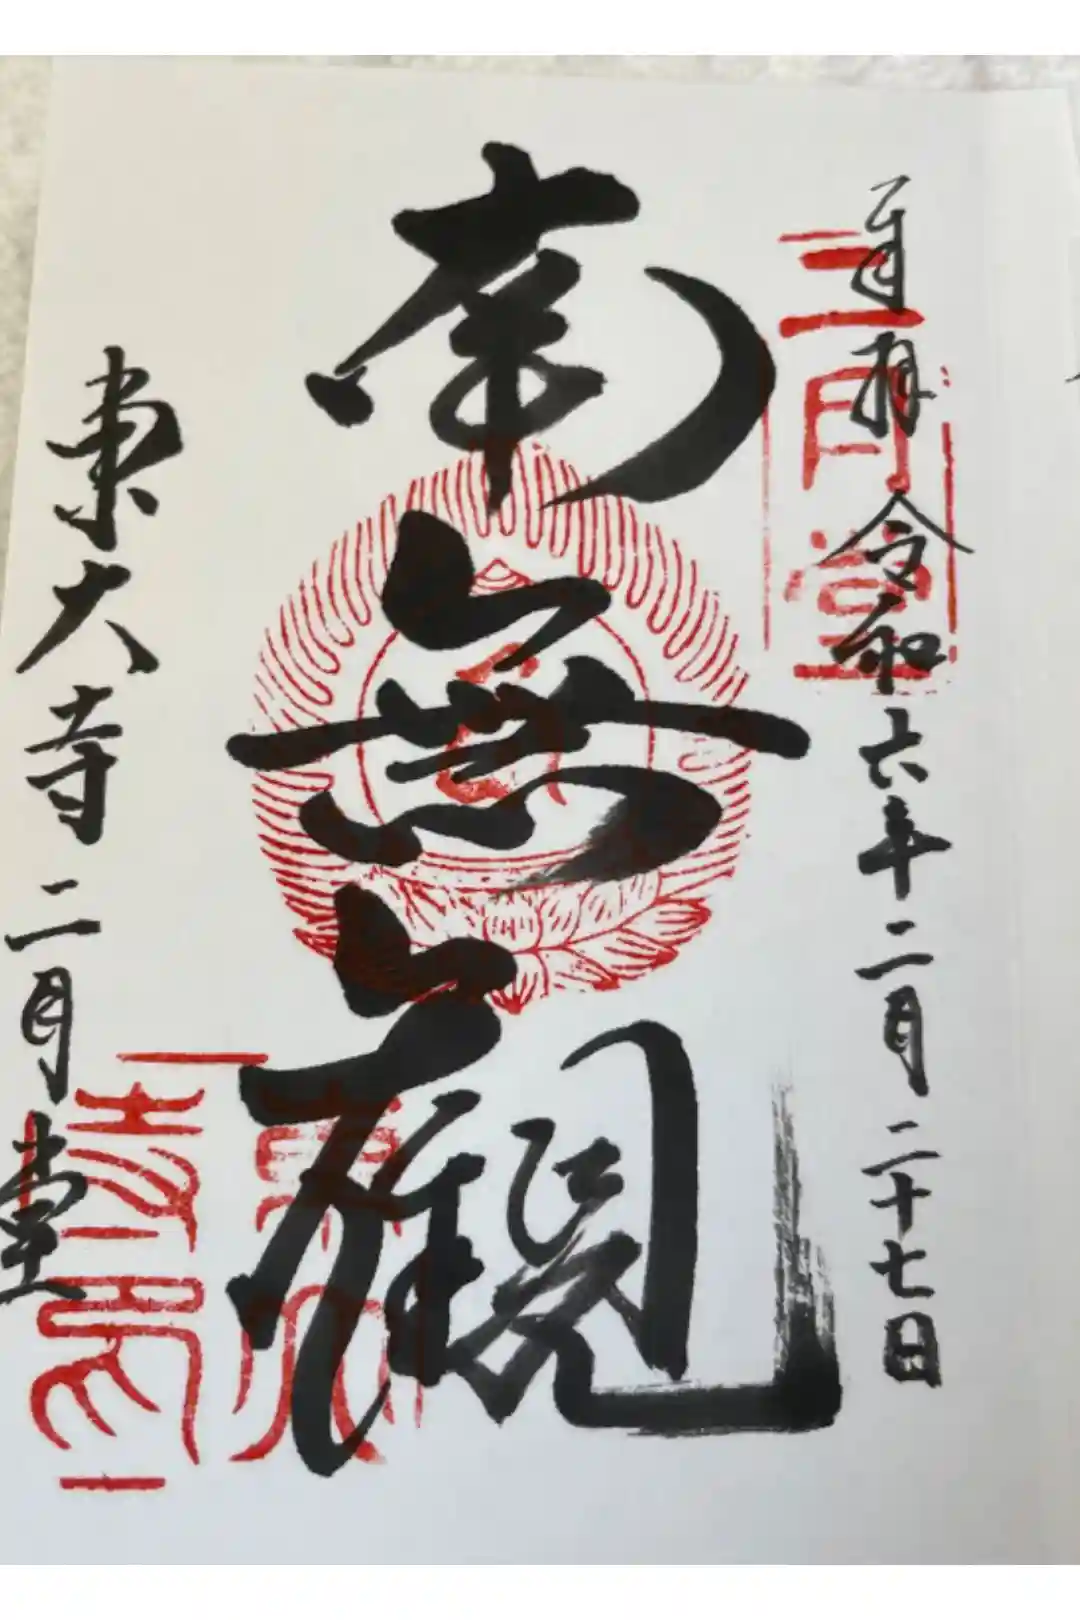 奉拝 令和六年二月二十七日
二月堂
南無観
東大寺二月堂